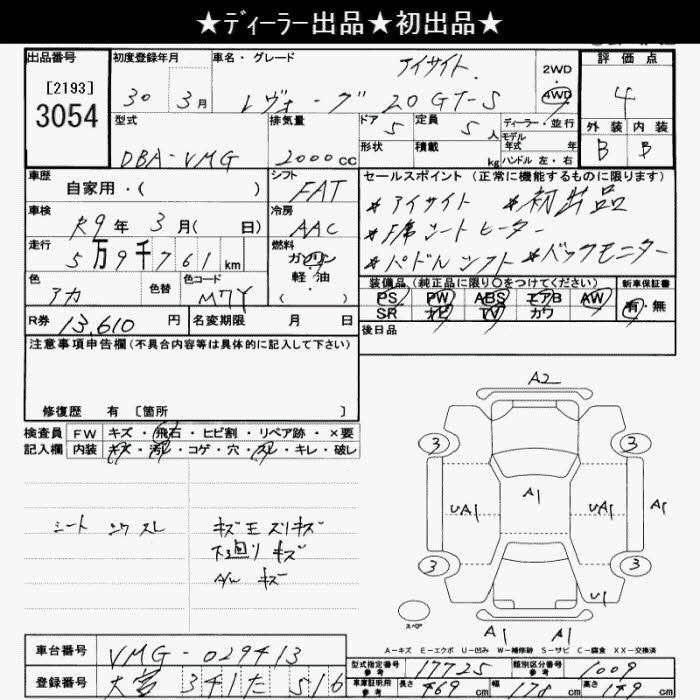 ★ディーラー出品★初出品★
出品番号
[2193]
3054
初度登録年月
30年 3月
車名・グレード
アイサイト
レヴォーグ 2.0GT-S
2WD
4WD
評価点
4
外装 内装
B B
型式
DBA-VMG
排気量
2000cc
ドア
5
定員
5人
形状
積載
kg
ディーラー・並行
モデル年式 年
ハンドル 左・右
車歴
自家用・( )
シフト
FAT
車検
R9年 3月( 日)
冷房
AAC
走行
5万9千761km
燃料
ガソリン
軽・油
( )
色
アカ
色替
色コード
M7Y
R券 13,610円
名変期限 月 日
セールスポイント (正常に機能するものに限ります)
*アイサイト *初出品
*F席シートヒーター
*パドルシフト *バックモニター
装備品(純正品に限り○をつけてください)
PS PW ABS エアB AW
SR ナビ TV カワ
新車保証書
有・無
後日品
注意事項申告欄(不具合内容等は具体的に記入して下さい)
修復歴 有 [箇所 ]
検査員 FW キズ・飛石・ヒビ割・リペア跡・×要
記入欄 内装 キズ・汚レ・コゲ・穴・スレ・キレ・破レ
シート シワ スレ
キズ王 スリキズ
下廻り キズ
A/W キズ
A2
3 3
UA1 A1 UA1 A1
3 3
U1
スペア
A1 A1
A-キズ E-エクボ U-凹み W-補修跡 S-サビ C-腐食 XX-交換済
車台番号 VMG-029413
登録番号 大宮 341 た 516
型式指定番号 参考 17725
類別区分番号 参考 1009
車庫証明用 参考 長さ 469cm 幅 178cm 高さ 149cm